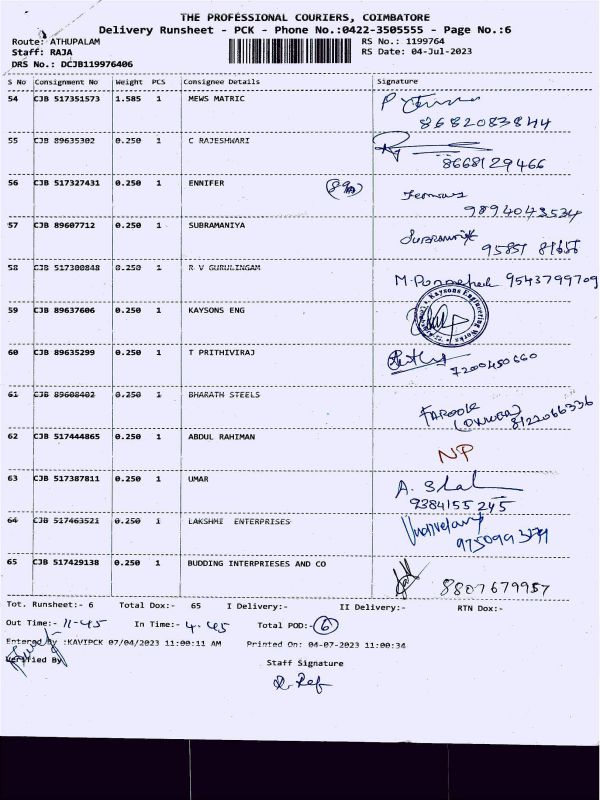 THE PROFESSIONAL COURIERS, COIMBATORE
Delivery Runsheet - PCK - Phone No.:0422-3505555 - Page No.:6
Route: ATHUPALAM RS No.: 1199764
Staff: RAJA RS Date: 04-Jul-2023
DRS No.: DCJB119976406
S No Consignment No Weight PCS Consignee Details Signature
54 CJB 517351573 1.585 1 MEWS MATRIC P
8682083844
55 CJB 89635302 0.250 1 C RAJESHWARI
8668129466
56 CJB 517327431 0.250 1 ENNIFER
9894043534
57 CJB 89607712 0.250 1 SUBRAMANIYA
95857 81656
58 CJB 517300848 0.250 1 R V GURULINGAM
9543799709
59 CJB 89637606 0.250 1 KAYSONS ENG
Kaysons Engineering Works
60 CJB 89635299 0.250 1 T PRITHIVIRAJ
7200450660
61 CJB 89608402 0.250 1 BHARATH STEELS
FAROOK
8122066336
62 CJB 517444865 0.250 1 ABDUL RAHIMAN
NP
63 CJB 517387811 0.250 1 UMAR
9384155 245
64 CJB 517463521 0.250 1 LAKSHMI ENTERPRISES
65 CJB 517429138 0.250 1 BUDDING INTERPRIESES AND CO
8807679957
Tot. Runsheet:- 6 Total Dox:- 65 I Delivery:- II Delivery:- RTN Dox:-
Out Time:- 11-45 In Time:- 4.45 Total POD:- 6
Entered By :KAVIPCK 07/04/2023 11:00:11 AM Printed On: 04-07-2023 11:00:34
Verified By
Staff Signature